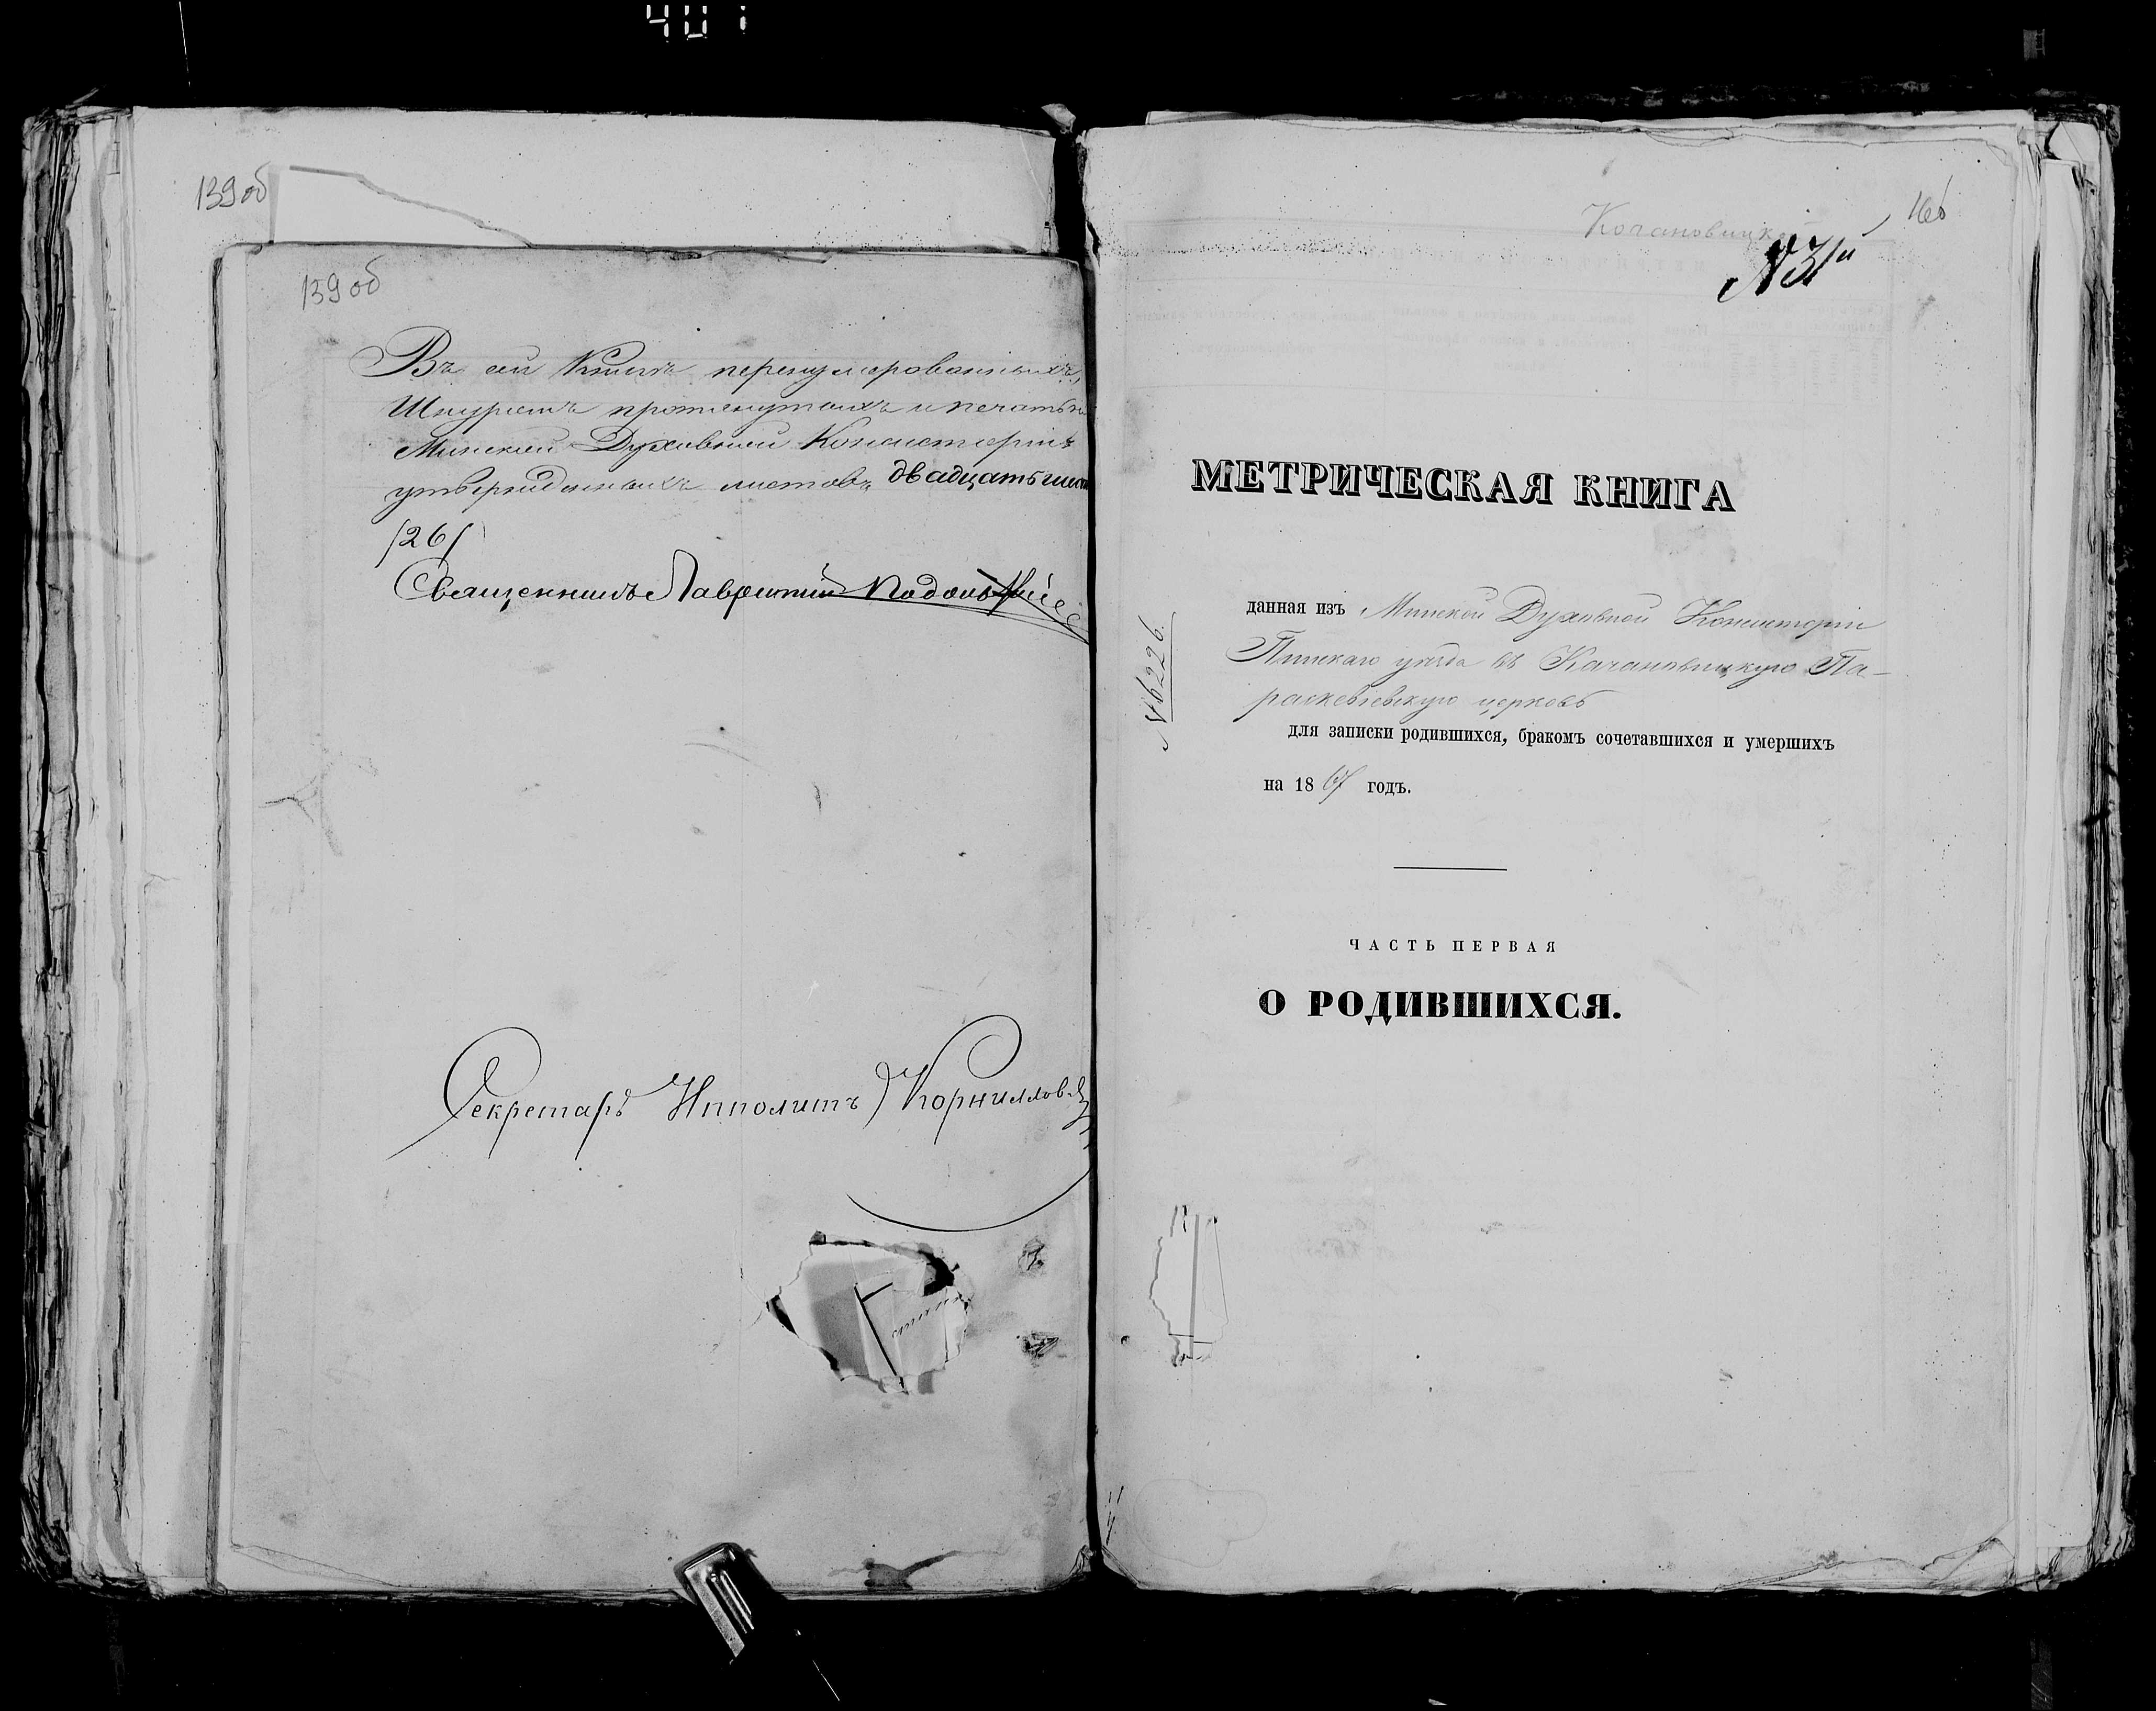 139 об
139 об
Въ сей Книгѣ перенумерованныхъ,
Шнуромъ протянутыхъ и печатью
Минской Духовной Консисторіи
утвержденныхъ листовъ двадцать шест
/26/
Священникъ Лаврентій
Секретарь Ипполитъ Корниллов
Качановицкой
№31й
МЕТРИЧЕСКАЯ КНИГА
данная изъ Минской Духовной Консисторіи
Пинскаго уѣзда въ Качановицкую Па-
раскевіевскую церковь
для записки родившихся, бракомъ сочетавшихся и умершихъ
на 1867 годъ.
№6226.
ЧАСТЬ ПЕРВАЯ
О РОДИВШИХСЯ.